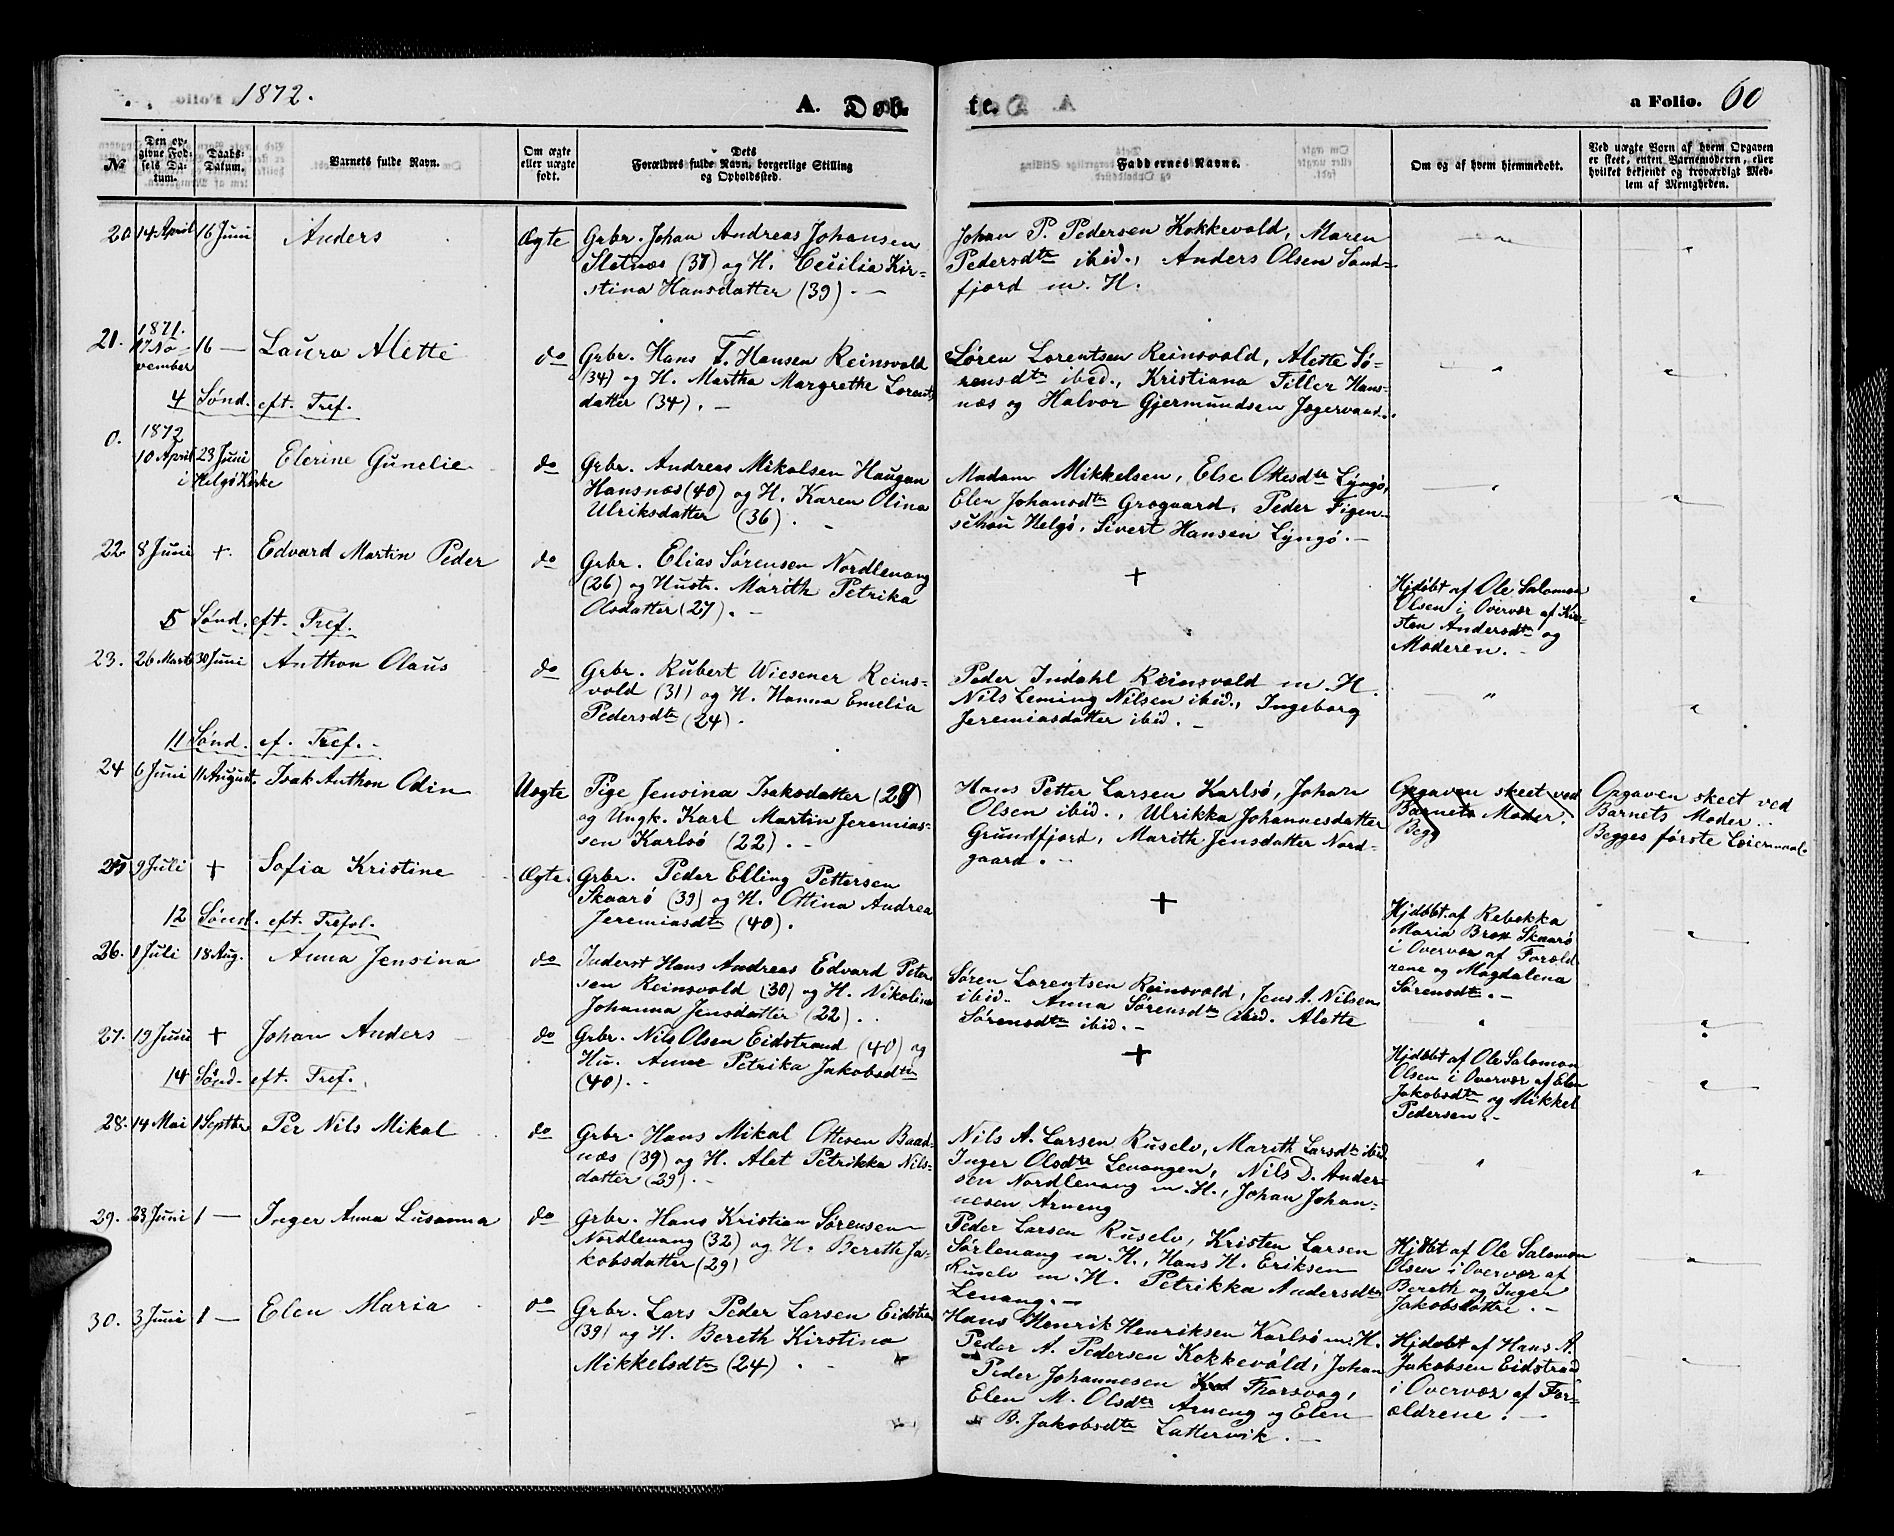 1872. A. Døb- te. a Folio. 60
No
Den op-
givne Fød-
sels Da-
tum.
Daabs-
Datum.
Barnets fulde Navn.
Om ægte
eller uægte
født.
Dets
Forældres fulde Navn, borgerlige Stilling
og Opholdssted.
Faddernes Navne.
Om og af hvem hjemmedøbt.
Ved uægte Børn af hvem Opgaven
er skeet, enten Barnemoderen, eller
hvilket bekjendt og troværdigt Med-
lem af Menigheden.
20 14 April 16 Juni Anders Ægte
Grbr. Johan Andreas Johansen
Sletnæs (37) og H. Cecilia Kir-
stina Hansdatter (39). -
Johan P. Pedersen Kokkevold, Maren
Pedersdtr ibid., Anders Olsen Sand-
fjord m. H.
21. 1871.
17 No-
vember
16 — Laura Alette do
Grbr. Hans F. Hansen Reinsvold
(34) og H. Martha Margrethe Lorents
datter (34). -
Søren Lorentsen Reinsvold, Alette Sø-
rensdtr ibid., Kristiana Figer Hans-
næs og Halvor Gjermundsen Jægervand.
4 Sønd. eft. Tref.
0. 1872
10 April 23 Juni
i Helgø Kirke
Elerine Gunelie do
Grbr. Andreas Mikalsen Haugan
Hansnæs (40) og H. Karen Olina
Ulriksdatter (36). -
Madam Mikkelsen, Else Ottesdtr Lyngø,
Elen Johansdtr Grogaard, Peder Figen-
schou Helgø, Sivert Hansen Lyngø. -
22 8 Juni +. Edvard Martin Peder do
Grbr. Elias Sørensen Nordlenang
(26) og Hustr. Marith Petrika
Olsdatter (27). -
+
Hjdøbt af Ole Salomon
Olsen i Overvær af Kir-
sten Andersdtr og
Moderen. -
5 Sønd. eft. Tref.
23. 26 Marts 30 Juni Anthon Olaus do
Grbr. Rubert Wiesener Reins-
vold (31) og H. Hanna Emelia
Pedersdtr (24).
Peder Indahl Reinsvold m. H.
Nils Leming Nilsen ibid., Ingeborg
Jeremiasdatter ibid. -
11 Sønd. ef. Tref. -
24 6 Juni 11 August. Isak Anthon Odin Uægte
Pige Jensina Isaksdatter (28)
og Ungk. Karl Martin Jeremias-
sen Karlsø (22). -
Hans Petter Larsen Karlsø, Johan
Olsen ibid., Ulrikka Johannesdatter
Grundfjord, Marith Jensdatter Nord-
gaard. -
Opgaven skeet ved
Barnets Moder.
Begg
Opgaven skeet ved
Barnets Moder..
Begges første Leiermaal
25 9 Juli + Sofia Kristine Ægte.
Grbr. Peder Elling Pettersen
Skaarø (39) og H. Ottina Andrea
Jeremiasdtr (40).
+
Hjdøbt af Rebekka
Maria Brox Skaarø
i Overvær af Foræld
rene og Magdalena
Sørensdtr. -
12 Sønd. eft. Trefol.
26. 1 Juli 18 Aug. Anna Jensina do
Inderst Hans Andreas Edvard Peter
sen Reinsvold (30) og H. Nikoline
Johanna Jensdatter (22). .
Søren Lorentsen Reinsvold, Jens A. Nilsen
ibid. Anna Sørensdtr ibid. Alette
Sørensdtr ibid. -
27. 19 Juni + Johan Anders do
Grbr. Nils Olsen Eidstrand (40) og
Hu. Anne Petrika Jakobsdtr
(40). -
+
Hjdøbt af Ole Salomon
Olsen i Overvær af Elen
Jakobsdtr og Mikkel
Pedersen. -
14 Sønd. eft. Tref.
28. 14 Mai 1 Septbr Per Nils Mikal do
Grbr. Hans Mikal Ottesen Baad-
næs (39) og H. Alet Petrikka Nils-
datter (29). -
Nils A. Larsen Ruselv, Marith Larsdtr ibid
Inger Olsdtr Lenangen, Nils D. Ander-
sen Nordlenang m. H., Johan Johan-
nesen Arneng
29. 23 Juni 1 — Inger Anna Susanna do
Grbr. Hans Kristian Sørensen
Nordlenang (32) og H. Bereth Ja-
kobsdatter (29)
Peder Larsen Ruselv, Kristen Larsen
Sørlenang m. H., Hans H. Eriksen
Ruselv m. H. Petrikka Andersdtr
Lenang. -
Hjdøbt af Ole Salomon
Olsen i Overvær af
Bereth og Inger
Jakobsdøttre. -
30. 3 Juni 1 — Elen Maria do
Grbr. Lars Peder Larsen Eidstran
(39) og H. Bereth Kirstina
Mikkelsdtr (24) .
Hans Henrik Henriksen Karlsø m. H.
Peder A. Pedersen Kokkevold, Johan
Peder Johannesen Thorsvaag,
Elen M. Olsdtr Arneng og Elen
B. Jakobsdtr Lattervik. -
Hjdøbt af Hans A.
Jakobsen Eidstrand
i Overvær af For-
ældrene. -